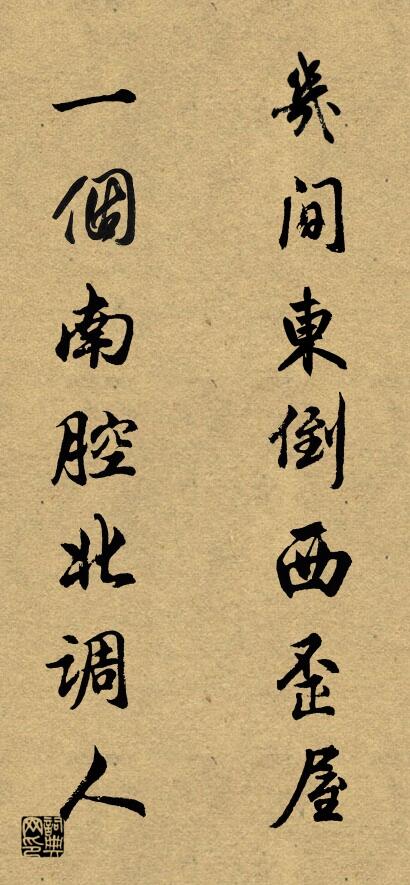 幾間東倒西歪屋
一個南腔北調人
詞典网印